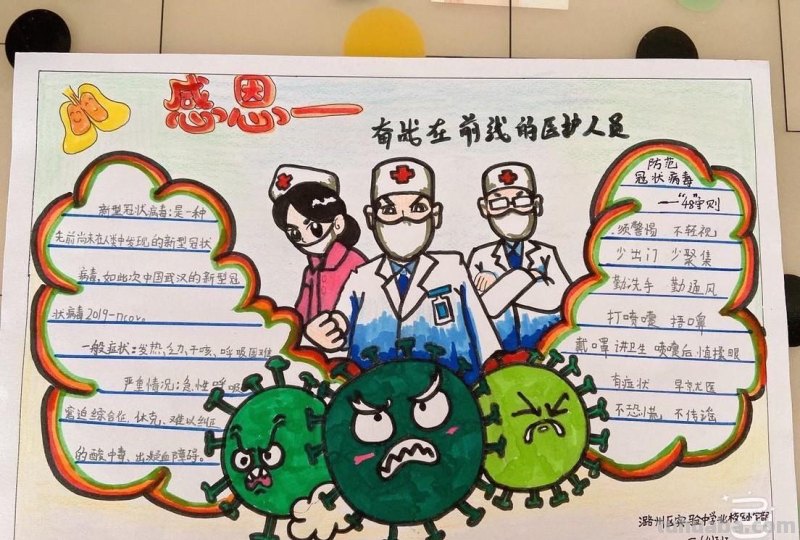 感恩一
奋战在前线的医护人员
新型冠状病毒：是一种
先前尚未在人类中发现的新型冠状
病毒，如此次中国武汉的新型冠
状病毒2019-ncov。
一般症状：发热、乏力、干咳、呼吸困难
严重情况：急性呼吸
窘迫综合征、休克、难以纠正
的酸中毒、出凝血障碍。
防范
冠状病毒
一“48”字则
须警惕 不轻视
少出门 少聚集
勤洗手 勤通风
打喷嚏 捂口罩
戴口罩 讲卫生
喷嚏后 慎揉眼
有症状 早就医
不恐慌 不传谣
潞州区实验中学北校